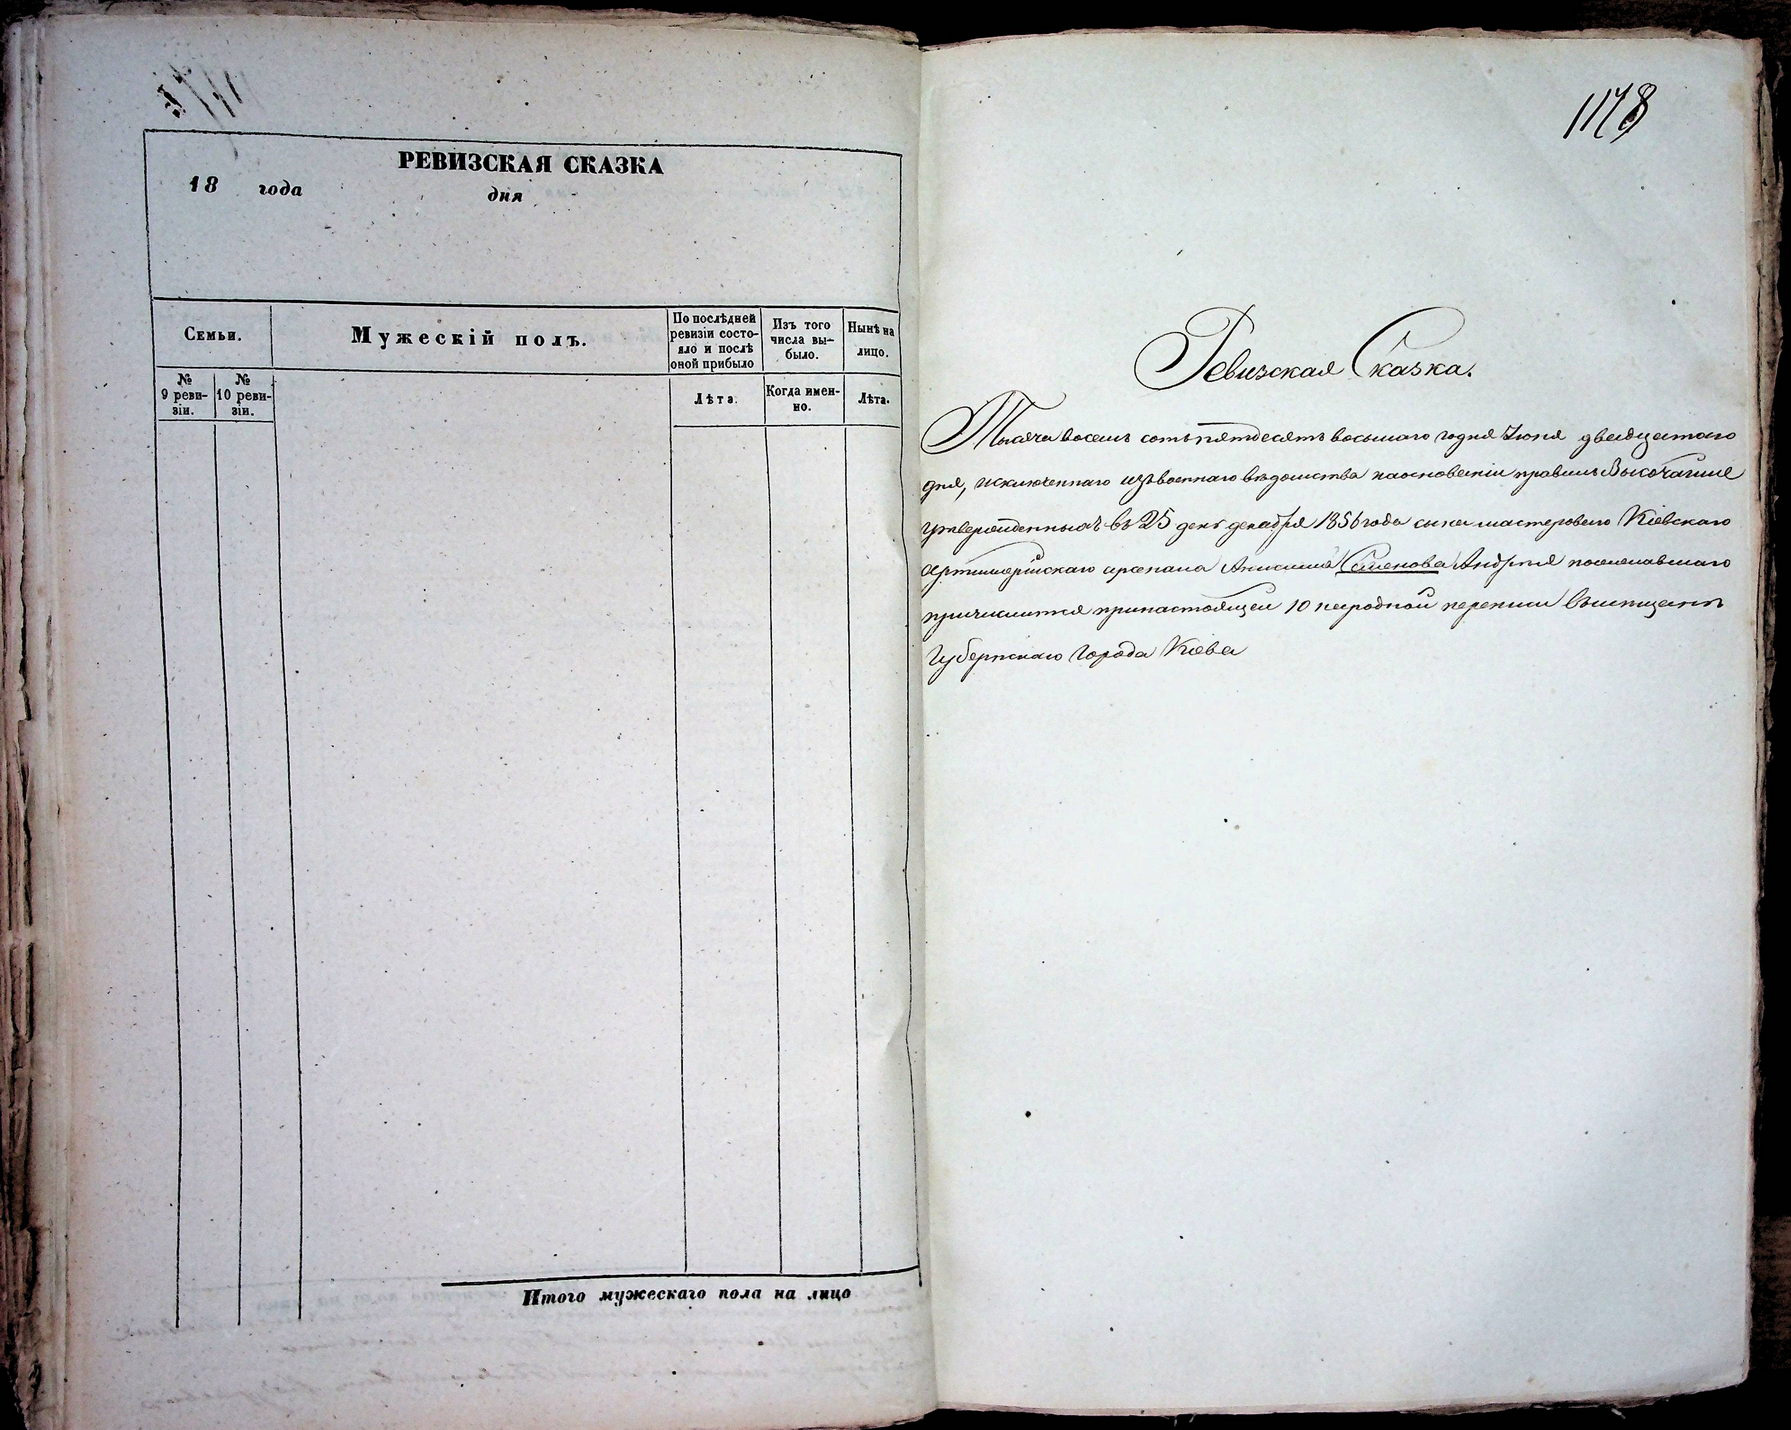 РЕВИЗСКАЯ СКАЗКА
18 года дня
Семьи.
Мужескій полъ.
По послѣдней ревизіи состояло и послѣ оной прибыло
Изъ того числа вы-было.
Нынѣ на лицо.
№ 9 реви-зіи.
№ 10 реви-зіи.
Лѣта.
Когда имен-но.
Лѣта.
Итого мужескаго пола на лицо
1178
Ревизская Сказка.
Тысяча восемь сотъ пятдесятъ восьмаго года Іюня двадцатаго
дня, исключеннаго изъ военнаго вѣдомства на основаніи правилъ Высочайше
утвержденныхъ въ 25 день декабря 1856 года сына мастероваго Кіевскаго
артиллерійскаго арсенала Анисима Семенова Андрея пожелавшаго
причислится при настоящей 10 народной переписи въ мещане
Губернскаго Города Кіева